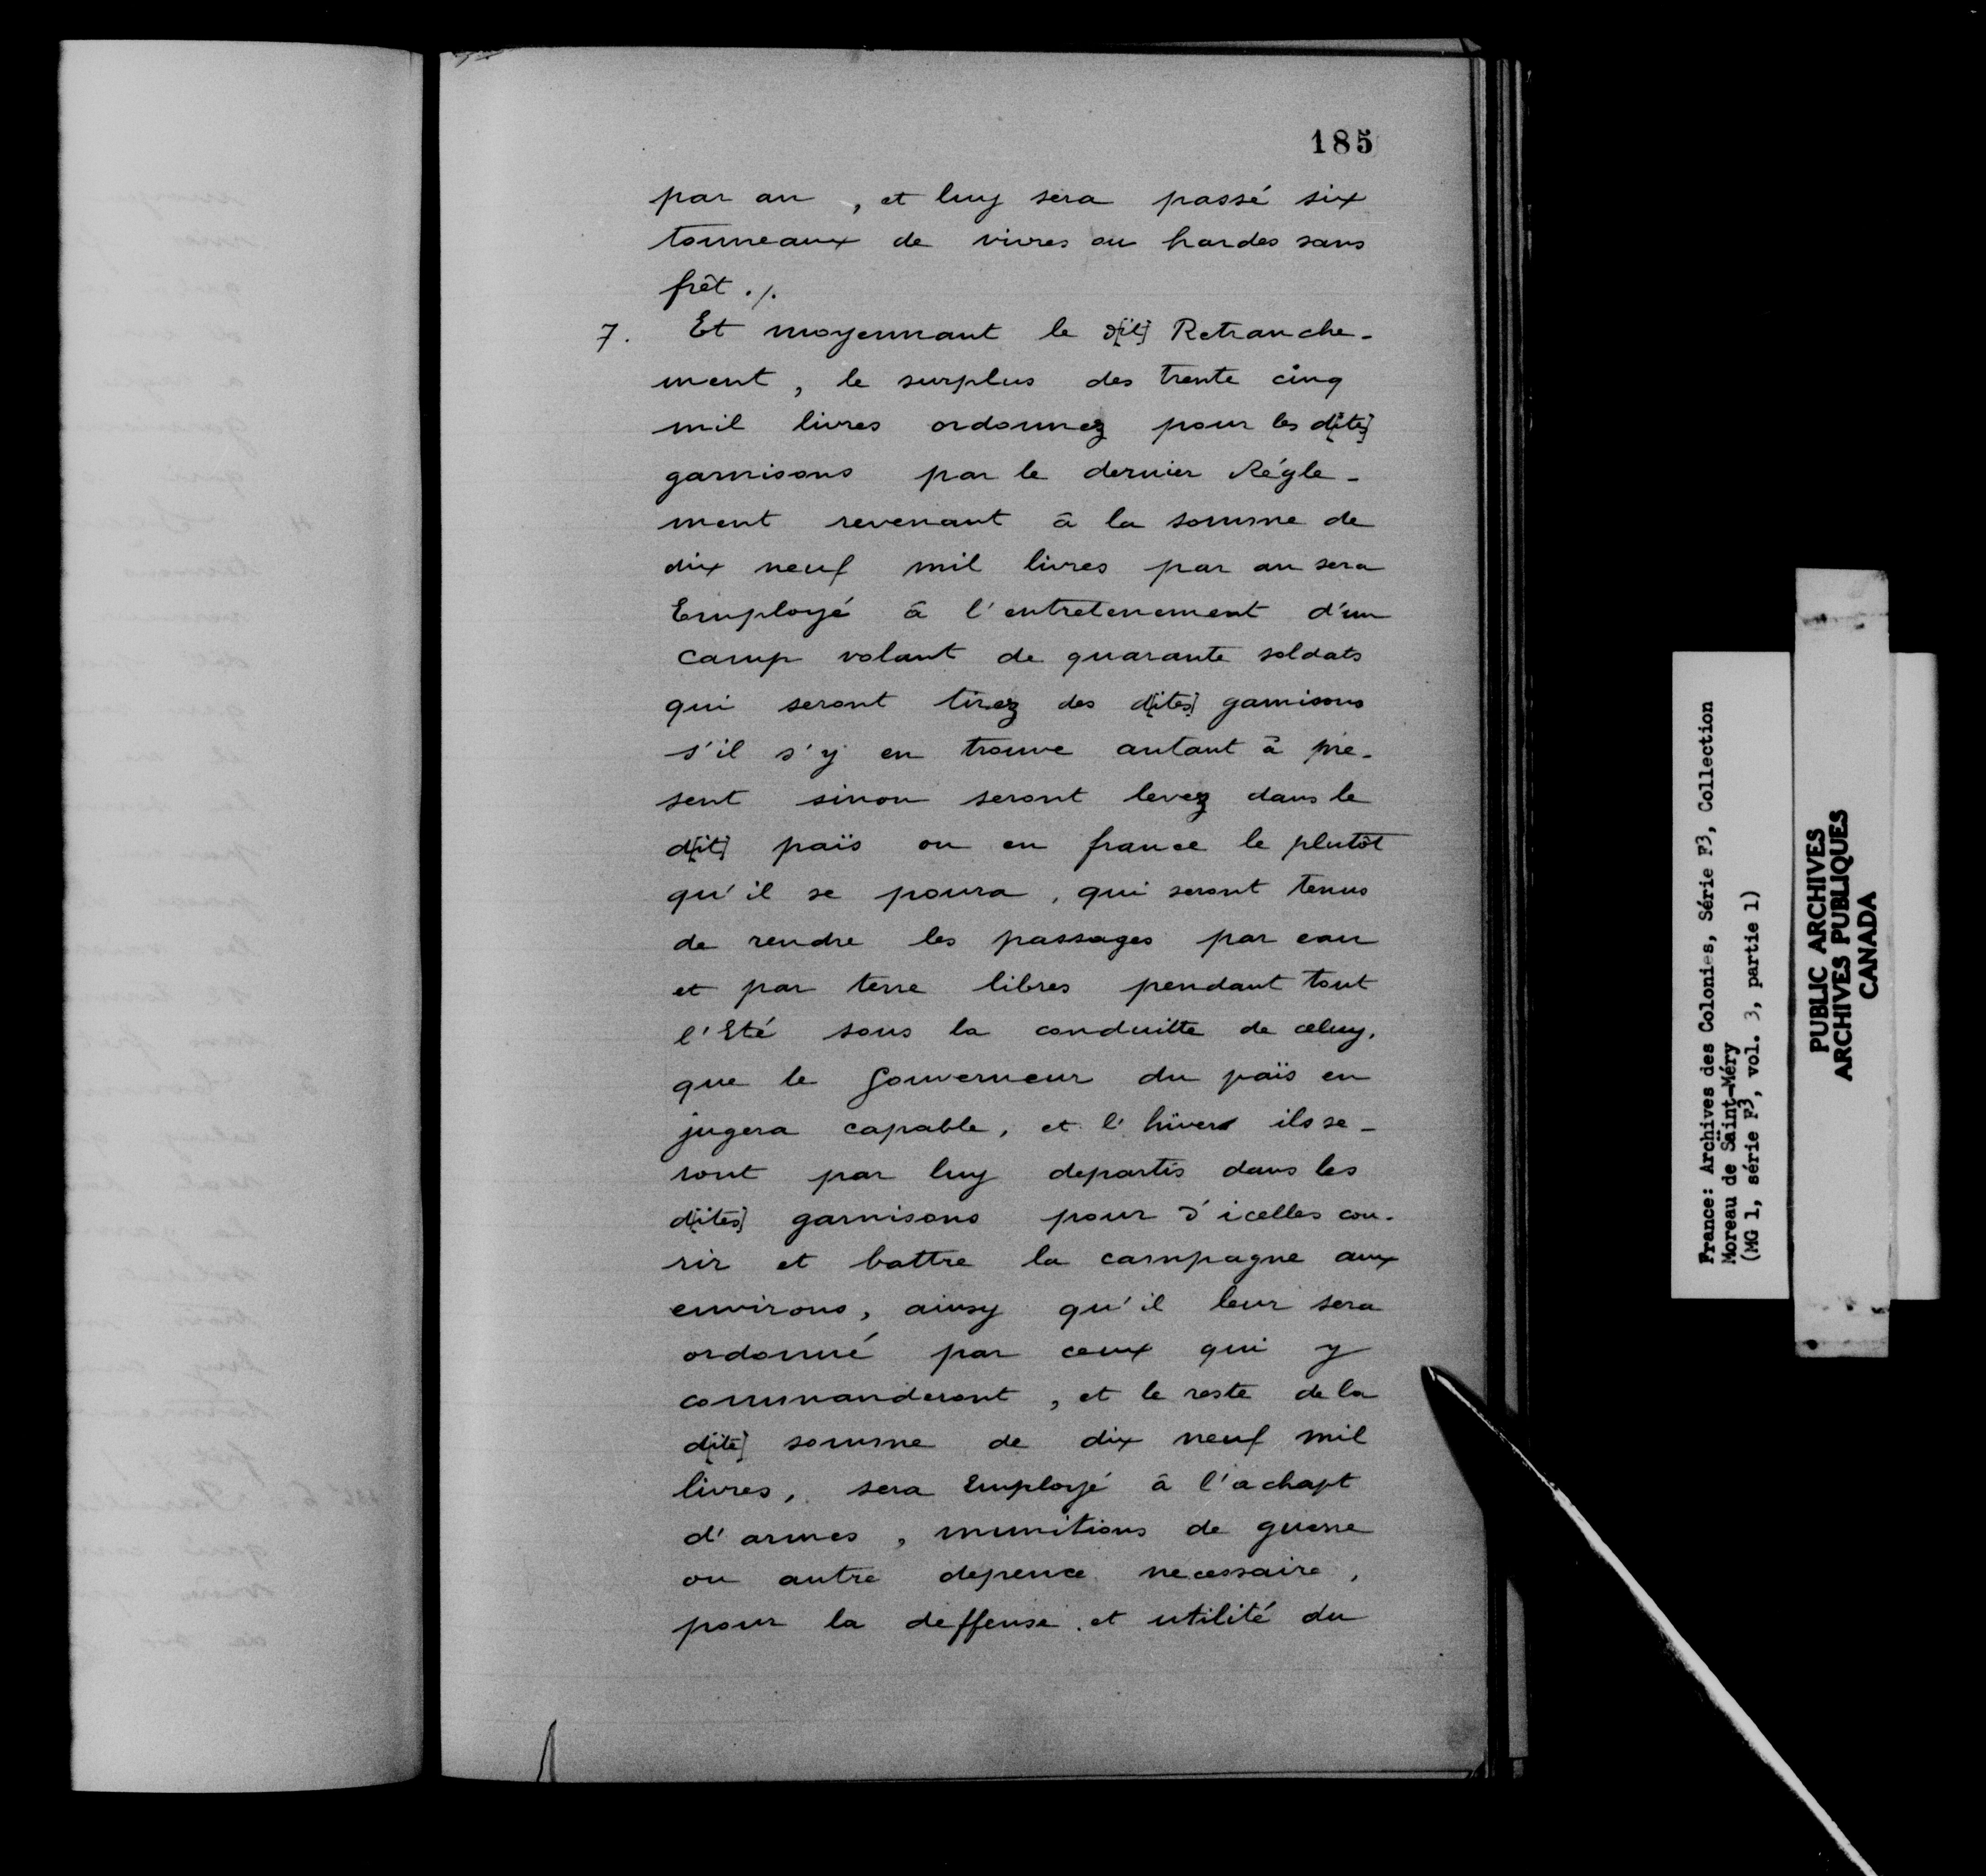 185
par an , et luy sera passé six
tonneaux de vivres ou hardes sans
frêt ./.
7. Et moyennant le d[it] Retranche-
ment , le surplus des trente cinq
mil livres ordonnez pour les d[ites]
garnisons par le dernier Régle-
ment revenant â la somme de
dix neuf mil livres par an sera
Employé â l'entretenement d'un
camp volant de quarante soldats
qui seront tirez des d[ites] garnisons
s'il s'y en trouve autant â pre-
sent sinon seront levez dans le
d[it] païs ou en france le plutôt
qu'il se poura , qui seront tenus
de rendre les passages par eau
et par terre libres pendant tout
l'Eté sous la conduitte de celuy,
que le Gouverneur du païs en
jugera capable, et l'hiver ils se-
ront par luy departis dans les
d[ites] garnisons pour d'icelles cou-
rir et battre la campagne aux
environs, ainsy qu'il leur sera
ordonné par ceux qui y
commanderont , et le reste de la
d[ite] somme de dix neuf mil
livres, sera Employé â l'achapt
d'armes , munitions de guerre
ou autre depence necessaire,
pour la deffense et utilité du
France: Archives des Colonies, Série F3, Collection
Moreau de Saint-Méry
(MG 1, série F3, vol. 3, partie 1)
PUBLIC ARCHIVES
ARCHIVES PUBLIQUES
CANADA